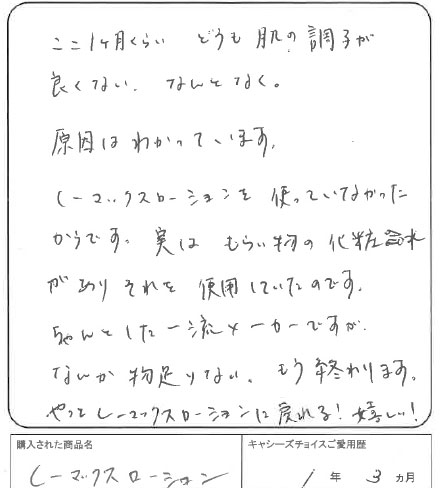 ここ1ヶ月くらい どうも 肌の調子が
良くない。なんとなく。
原因はわかっています。
Lーマックスローションを 使っていなかった
からです。実は もらい物の 化粧水
があり それを 使用していたのです。
ちゃんとした一流メーカーですが、
なんか物足りない。もう終わります。
やっとLーマックスローションに戻れる!嬉しい!
購入された商品名
キャシーズチョイスご愛用歴
Lーマックスローション
1年3カ月